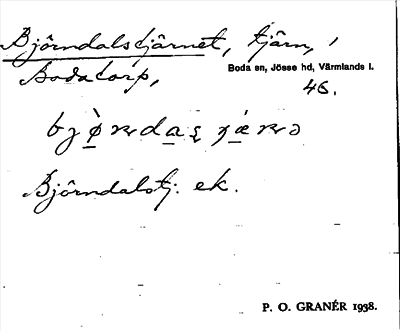 Björndalstjärnet, tjärn, i
Bodatorp,
Boda sn, Jösse hd, Värmlands l.
46.
Björndalstj: ek.
P. O. GRANÉR 1938.